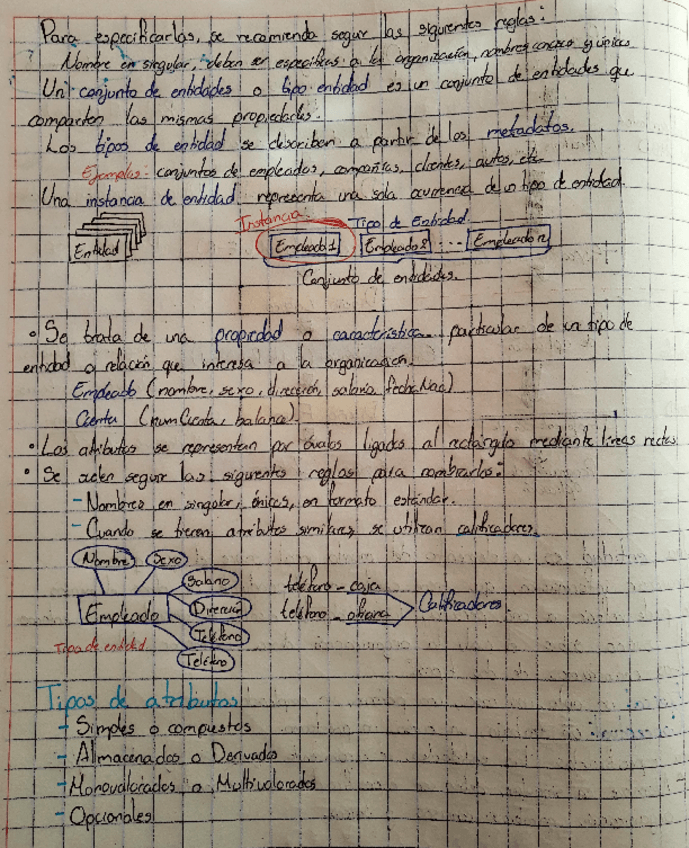 Para especificarlas, se recomienda seguir las siguientes reglas:
Nombre en singular, deben ser específicas a la organización, nombres concisos y únicos
Un conjunto de entidades o tipo entidad es un conjunto de entidades que
comparten las mismas propiedades.
Los tipos de entidad se describen a partir de los metadatos.
Ejemplos: conjuntos de empleados, compañías, clientes, autos, etc
Una instancia de entidad representa una sola ocurrencia de un tipo de entidad.
Instancia Tipo de Entidad
Entidad Empleado1 Empleado2 ... Empleado n
Conjunto de entidades.
• Se trata de una propiedad o característica particular de un tipo de
entidad o relación que interesa a la organización.
Empleado (nombre, sexo, dirección, salario, fechaNac)
Cuenta (numCuenta, balance).
• Los atributos se representan por óvalos ligados al rectángulo mediante líneas rectas
• Se suelen seguir las siguientes reglas para nombrarlos:
- Nombres en singular, únicos, en formato estándar.
- Cuando se tienen atributos similares, se utilizan calificadores.
Nombre Sexo
Salario teléfono_casa
Empleado Dirección teléfono_oficina Calificadores.
Teléfono
Tipo de entidad
Teléfono
Tipos de atributos
- Simples o compuestos
- Almacenados o Derivados
- Monovalorados o Multivalorados
- Opcionales